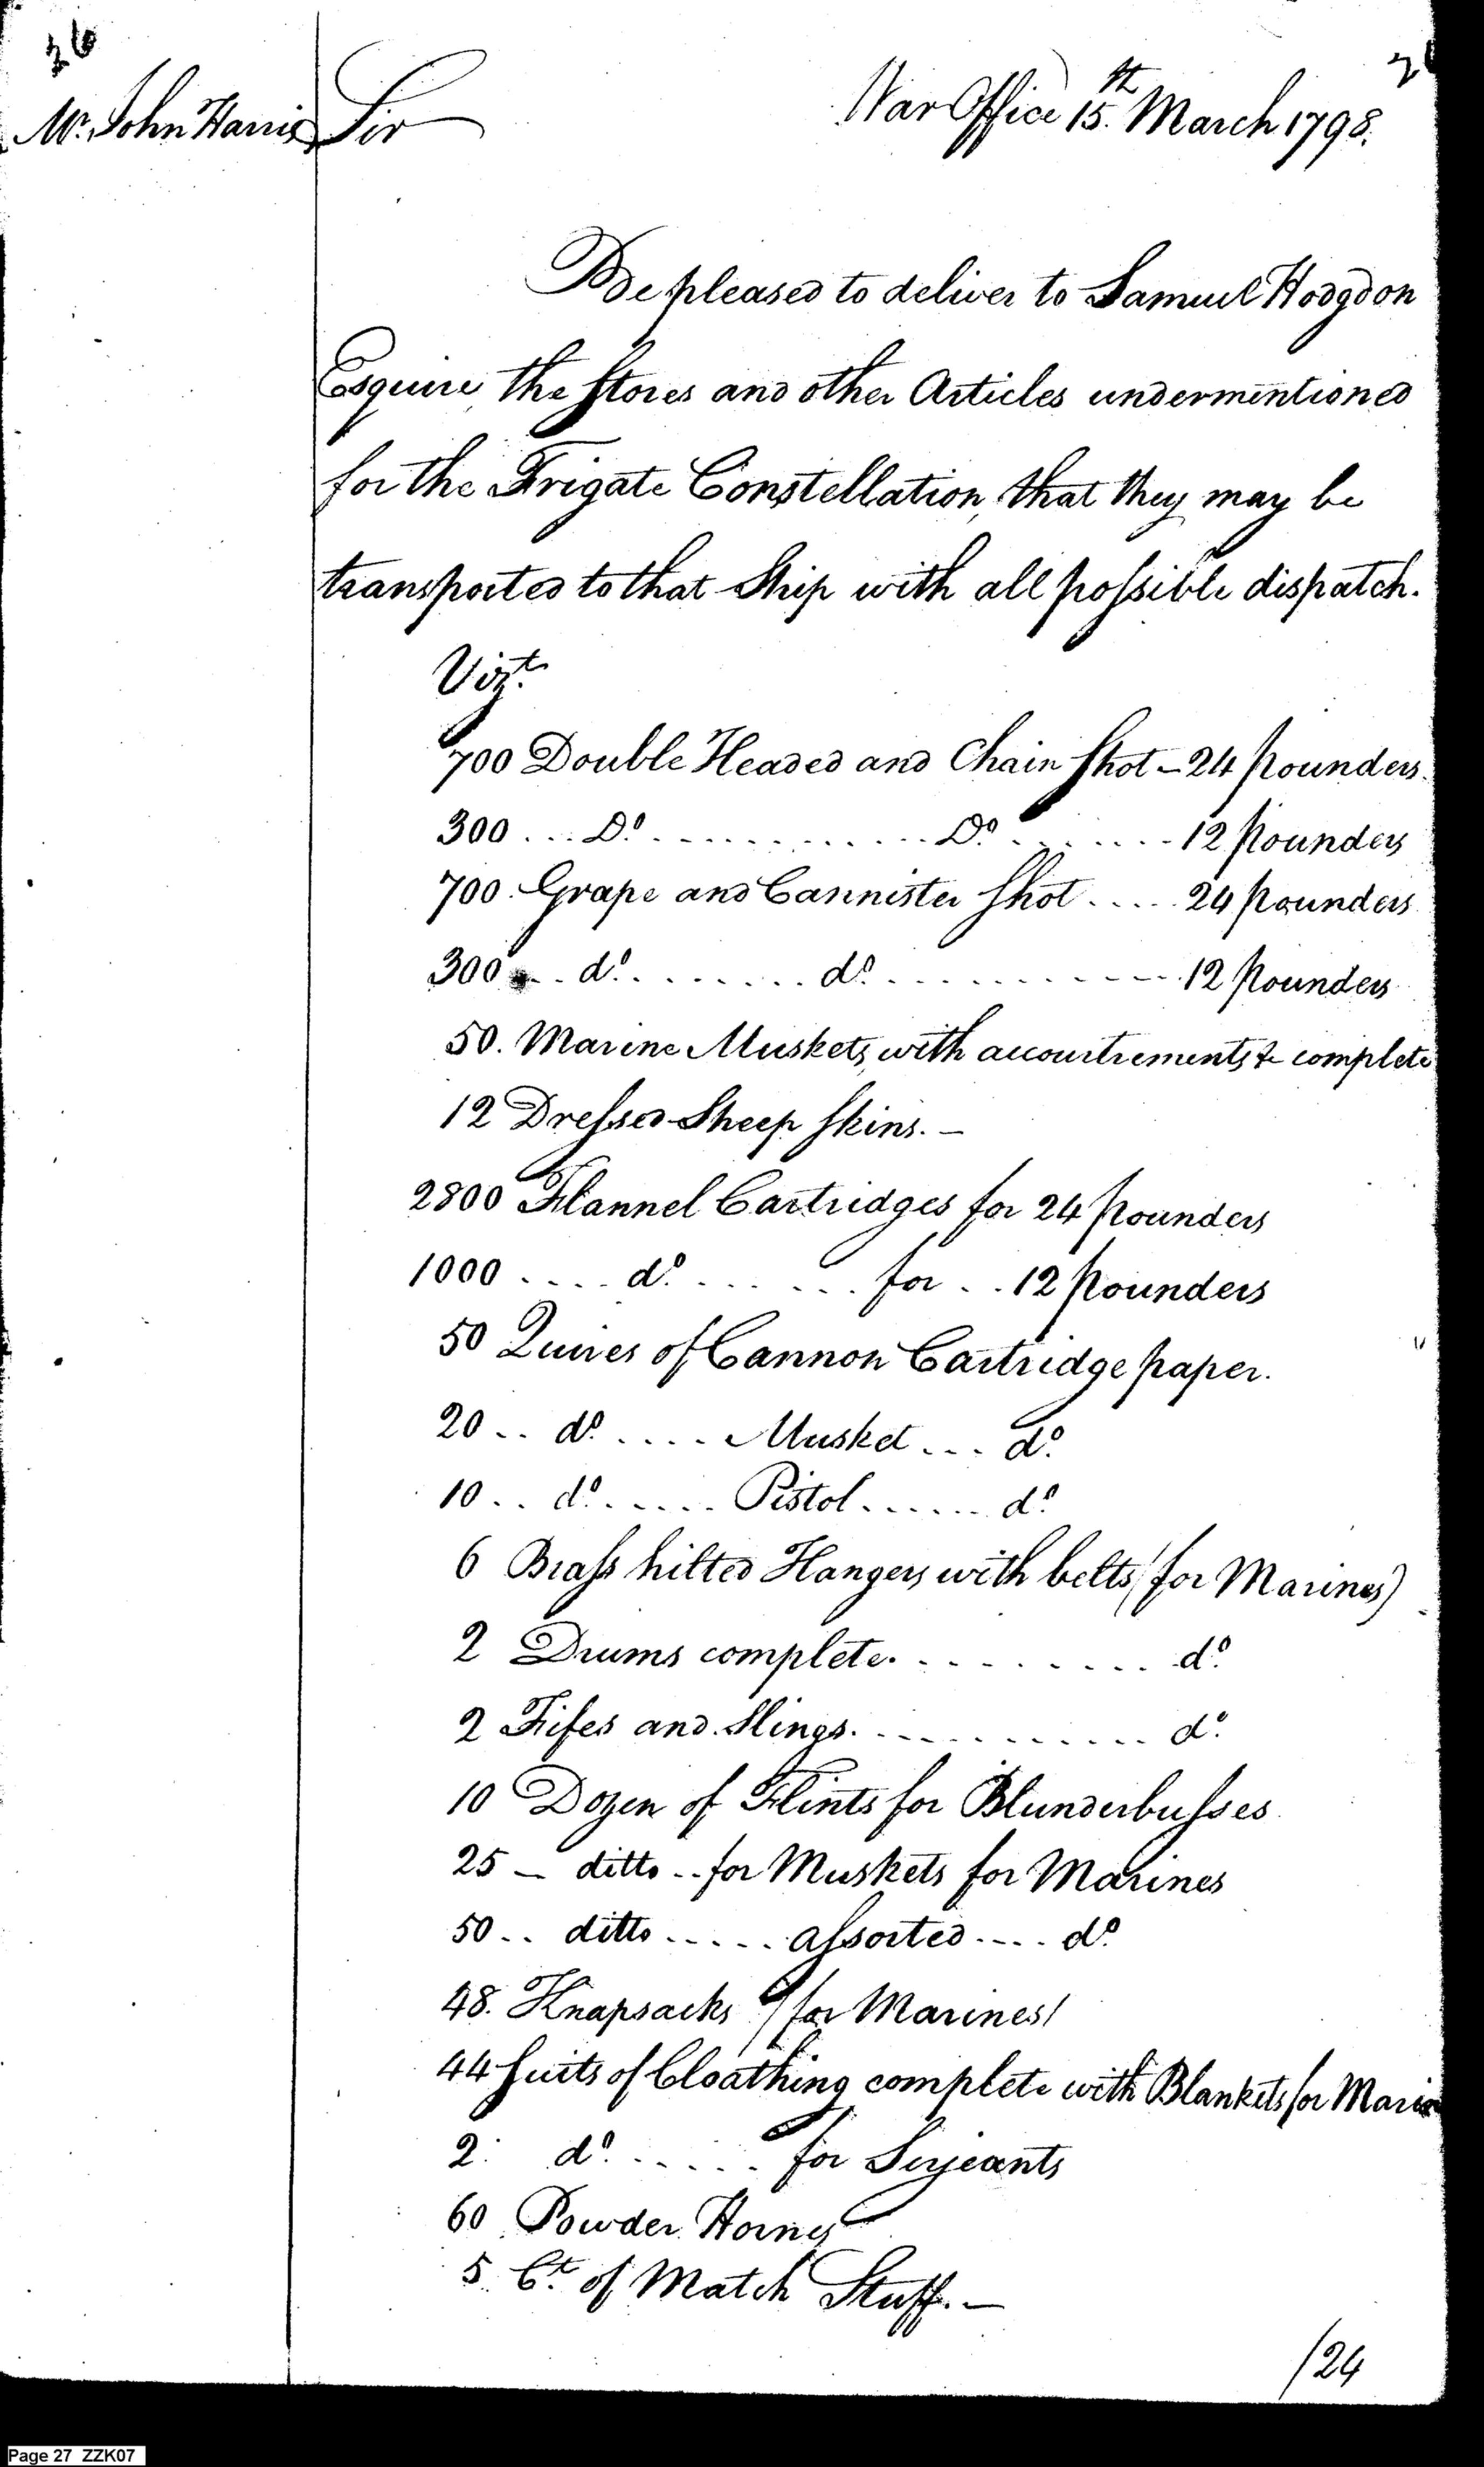 26
Mr. John Harris
Sir
War Office 15th March 1798.
Be pleased to deliver to Samuel Hodgdon
Esquire, the Stores and other Articles undermentioned
for the Frigate Constellation, that they may be
transported to that Ship with all possible dispatch.
Vizt.
700 Double Headed and Chain Shot – 24 pounders.
300 .... Do. .............. Do. ....... 12 pounders
700. Grape and Cannister Shot ..... 24 pounders
300 ... do. ........ do. ............ 12 pounders
50. Marine Muskets, with accourtrements & complete
12 Dressed Sheep Skins. –
2800 Flannel Cartridges for 24 pounders
1000 .... do. ...... for .. 12 pounders
50 Quires of Cannon Cartridge paper.
20 .. do. .... Musket ... do.
10 .. do. ..... Pistol ...... do.
6 Brass hilted Hangers with belts (for Marines)
2 Drums complete. ......... do.
2 Fifes and Slings. ........... do.
10 Dozen of Flints for Blunderbusses
25 – ditto .. for Muskets for Marines
50 .. ditto ..... assorted .... do.
48. Knapsacks (for Marines)
44 Suits of Cloathing complete with Blankets for
2. do. ..... for Serjeants
60 Powder Horns
5 Ct. of Match Stuff. –
/24
Page 27 ZZK07